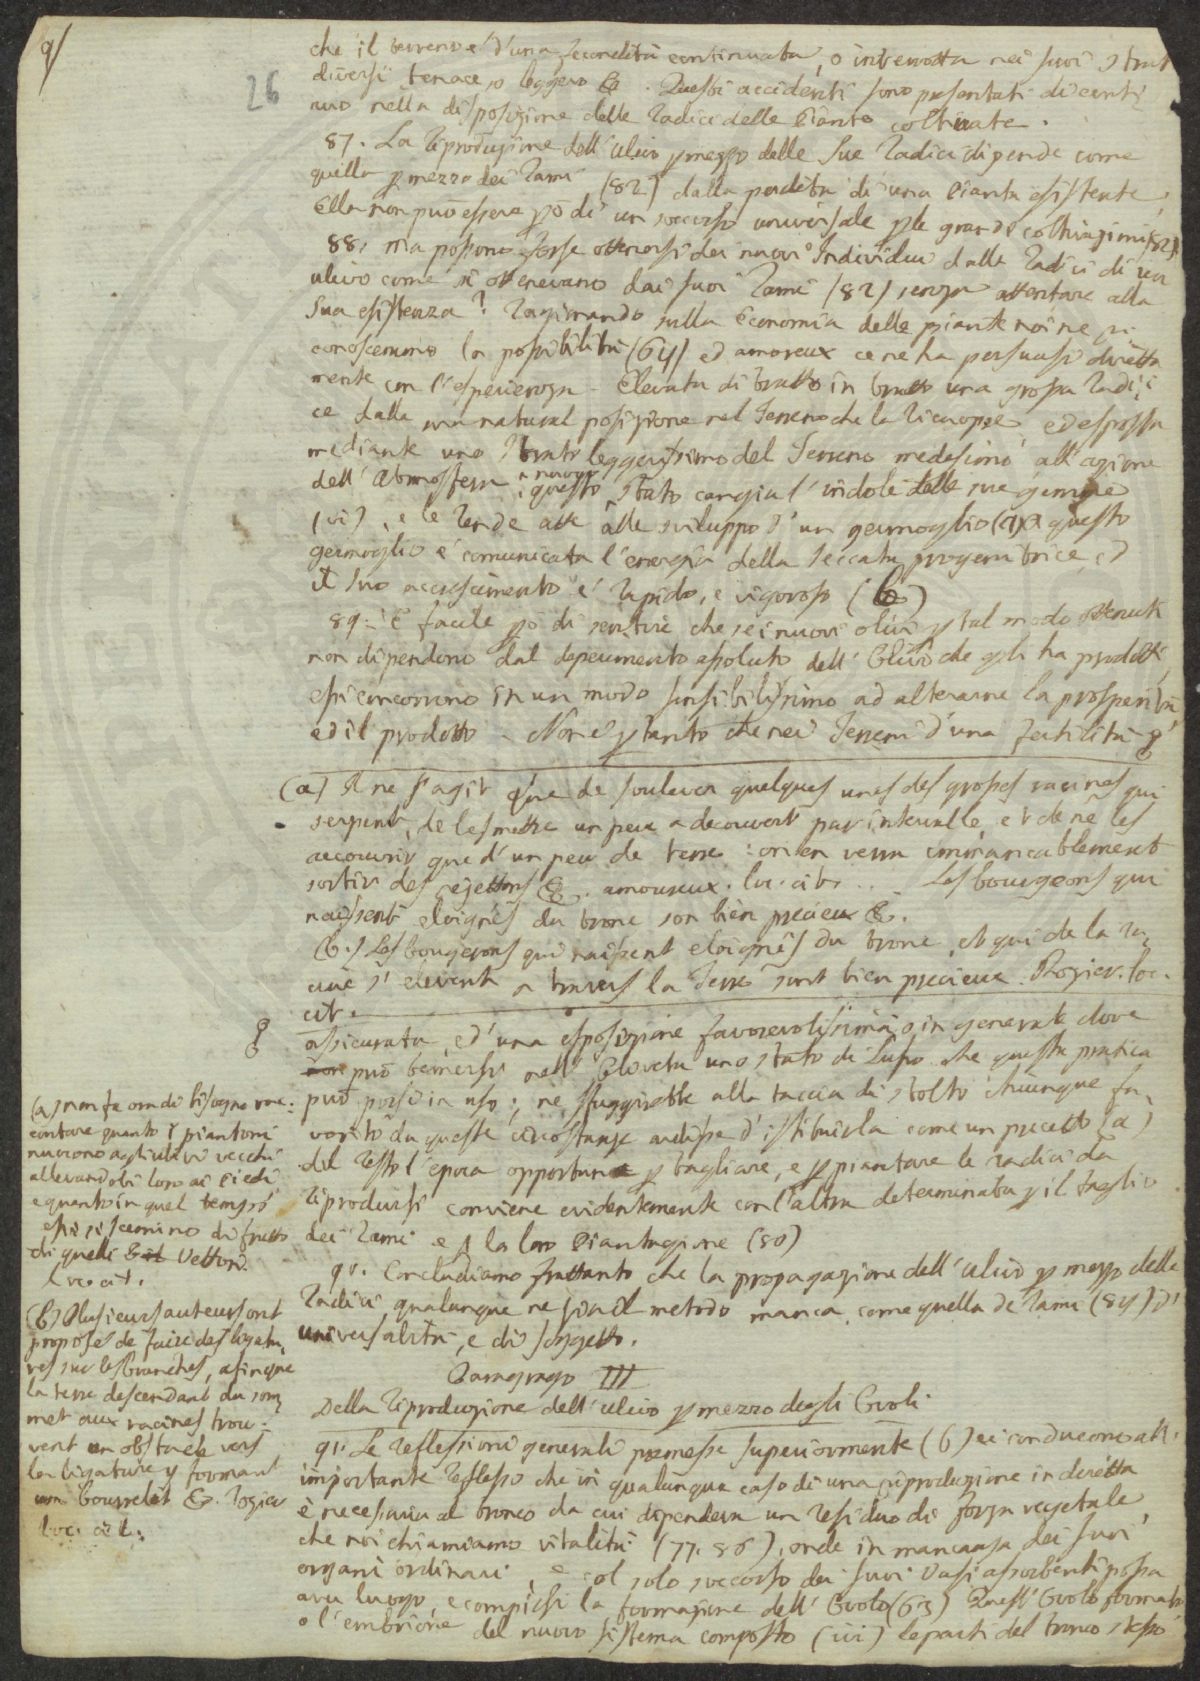 9/
26
che il terreno é d'una fecondità continuata, o interrotta nei suoi strat
diversi tenace, o leggero &. Questi accidenti sono presentati di conti
nuo nella disposizione delle Radici delle Piante coltivate.
87. La Riproduzione dell'ulivo p mezzo delle sue Radici dipende come
quella p mezzo dei Rami (82) dalla perdita di una Pianta esistente,
Ella non può essere pò di un soccorso universale p le grandi coltivazioni (82)
88. Ma possono forse ottenersi dei nuovi Individui dalle Radici di un
ulivo come si ottenevano dai suoi Rami (82) senza attentare alla
sua esistenza? Ragionando sulla Economia delle piante noi ne ri
conoscemmo la possibilità (64) ed amoreux ce ne ha persuasi diretta
mente con l'esperienza. Elevata di tratto in tratto una grossa Radi
ce dalla sua natural posizione nel Terreno che la ricuopre, ed esposta
mediante uno strato leggerissimo del Terreno medesimo all'azione
dell'Atmosfera, questo nuovo stato cangia l'indole delle sue gemme
(vi), e le rende atte allo sviluppo d'un germoglio (a) a questo
germoglio é comunicata l'energia della seccata progenitrice, ed
il suo accrescimento é rapido, e vigoroso (b)
89. É facile pò di sentire che se i nuovi olivi p tal modo ottenuti
non dipendono dal deperimento assoluto dell'Olivo che gli ha prodotti,
essi concorrono in un modo sensibilissimo ad alterarne la prosperità,
ed il prodotto. Non é p tanto che nei Terreni d'una fertilità
(a) Il ne s'agit que de soulever quelques unes des grosses racines qui
serpent, de les mettre un peu a decouvert par intervalle, et de ne les
recouvrir que d'un peu de terre: on en verra immancablement
sortir des rejettons &. amoureux. loc. cit. .. Les bourgeons qui
naissent eloignés du tronc son bien precieux &.
(b.) Les bougeons qui naissent eloignés du tronc, et qui de la ra,
cine s'elevent a travers la Terre sont bien precieux. Rozier. loc.
cit.
assicurata, ed'una esposizione favorevolissima, o in generale dove
non può temersi nell'Oliveta uno stato di lusso che questa pratica
può porsi in uso; ne sfuggirebbe alla taccia di stolto chiunque fa,
vorito da queste circostanze ardisse d'istituirla come un precetto (a)
del resto l'epoca opportuna p tagliare, e p piantare le radici da
Riprodursi conviene evidentemente con l'altra determinata p il taglio
dei Rami e p la loro Piantagione (80)
90. Concludiamo frattanto che la propagazione dell'ulivo p mezzo delle
Radici qualunque ne sia il metodo manca, come quella de Rami (84) d'
universalità, e di soggetto.
Paragrafo III
Della Riproduzione dell'ulivo p mezzo degli Ovoli.
91. Le Reflessioni generali premesse superiormente (6) ci conducono all'
importante Reflesso che in qualunque caso di una riproduzione indiretta
è necessario al tronco da cui dipendeva un residuo di forza vegetale,
che noi chiamiamo vitalità (77. 86), onde in mancanza dei suoi
organi ordinari, e col solo soccorso dei suoi Vasi assorbenti possa
aver luogo, e compiersi la formazione dell'Ovolo (63) Quest'Ovolo formato
o l'embrione del nuovo sistema composto (iii) le parti del tronco stesso
(a) non fa ora di bisogno rac:
contare quanto i piantoni
nuocono agli ulivi vecchi
allevandoli loro ai Piedi
e quanto in quel tempo
essi si scemino di frutto
di quelli &. Vettori
loc. cit.
(b) Plusieurs auteurs ont
proposés de faire des ligatu,
res sur les branches, afinque
la terre descendant du som,
met aux racines trou.
vent un obstacle vers
la ligature y formant
un bourrelet &. rozier
loc. cit.